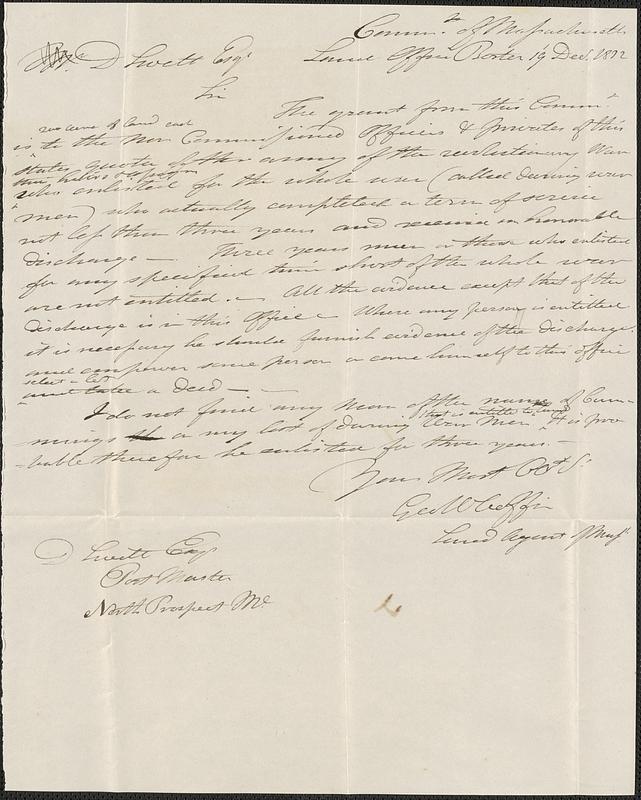 Commn.th of Massachusetts
Land Office Boston 19 Decr. 1832
D Swett Esqr
Sir
The grant from this Commth.
200 acres of land each
is to the Non Commissioned Officers & Privates of this
States quota of the army of the revolutionary War
who enlisted for the whole war (called during war
men) who actually completed a term of service
not less than three years and received an honorable
discharge — Three years men or those who enlisted
for any specified time short of the whole war
are not entitled. — All the evidence except that of the
discharge is in this Office — Where any person is entitled
it is necessary he should furnish evidence of the discharge
and empower some person or come himself to this office
select a lot
and take a deed — —
I do not find any man of the name of Cum-
that is entitled to land
mings on my list of during War Men, It is pro-
-bable therefore he enlisted for three years. —
Your Most Obt St
Geo W Coffin
Land Agent of Mass
D Swett Esqr
Post Master
North Prospect Me